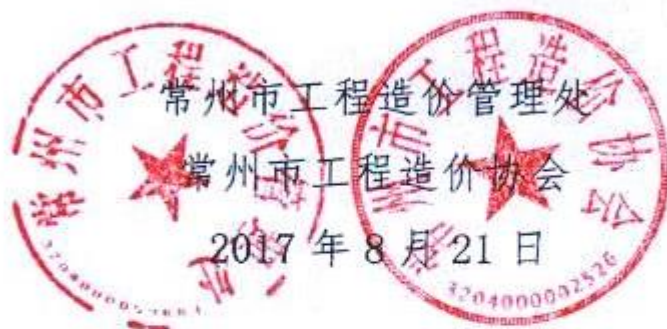 常州市工程造价管理处
常州市工程造价协会
2017年8月21日
常州市工程造价管理处
常州市工程造价协会
3204000002526